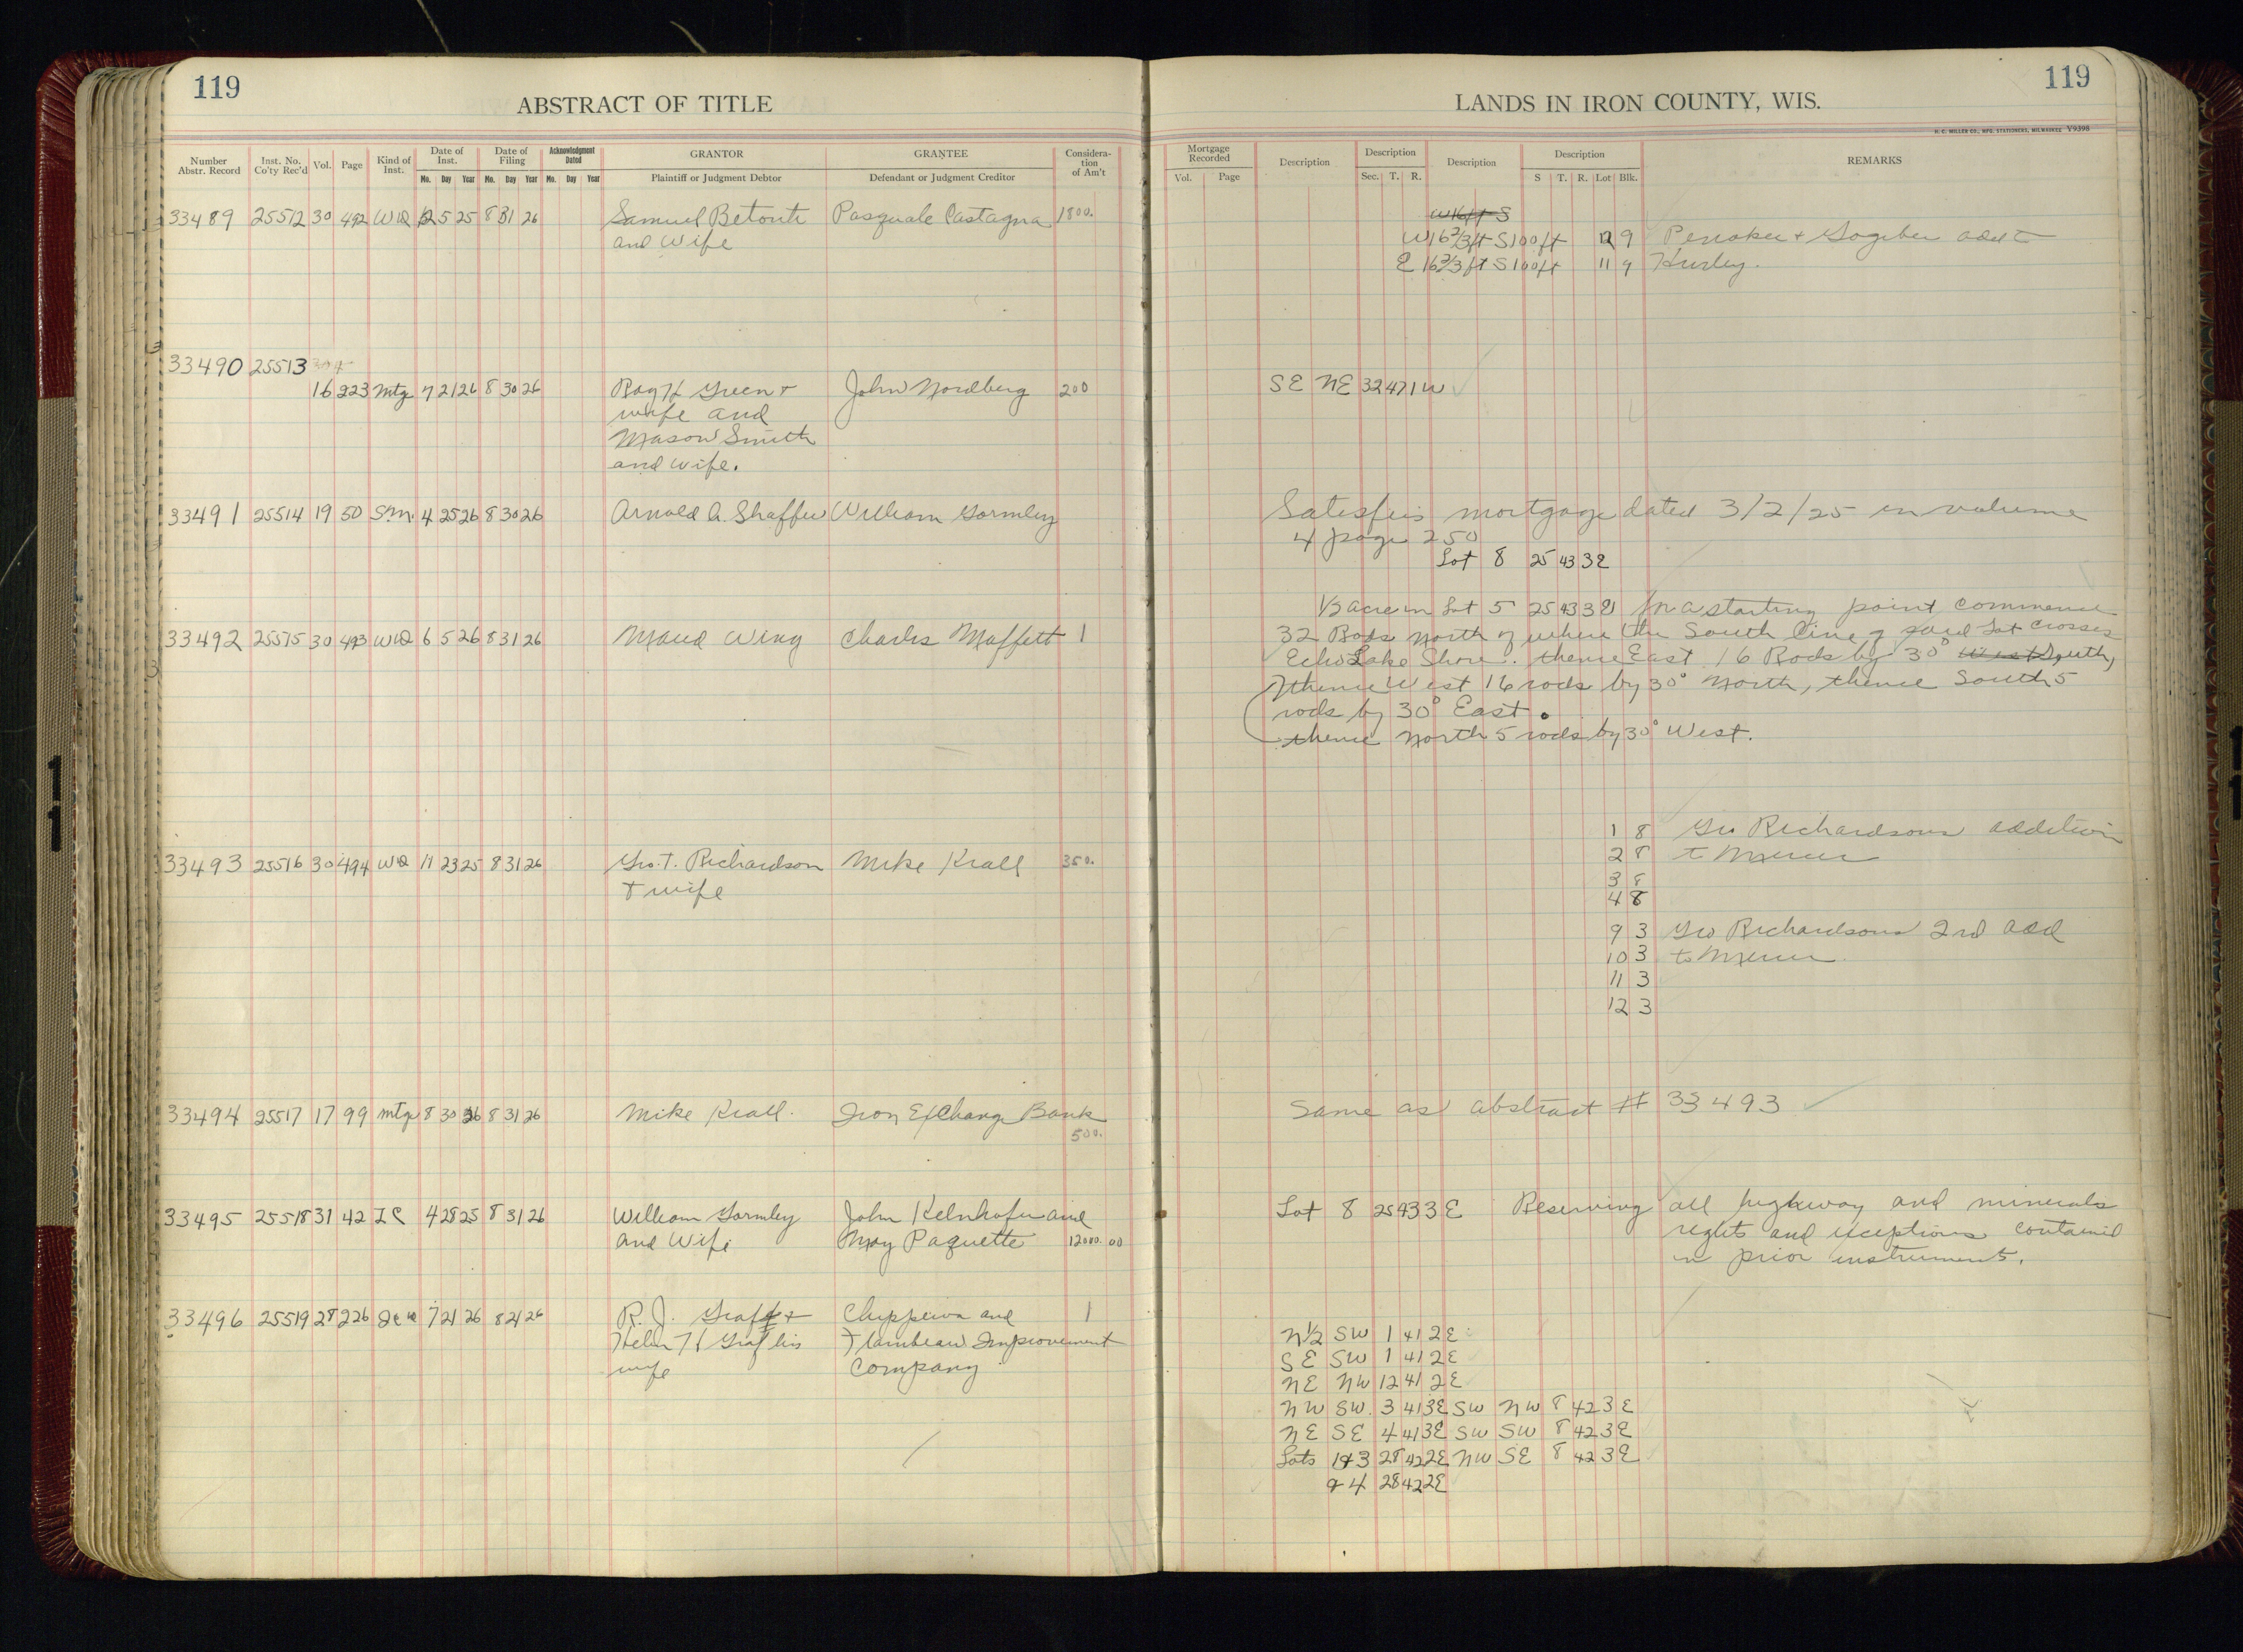 119
119
ABSTRACT OF TITLE
LANDS IN IRON COUNTY, WIS.
H. C. MILLER CO., MFG. STATIONERS, MILWAUKEE V9398
Number Abstr. Record
Inst. No. Co'ty Rec'd
Vol.
Page
Kind of Inst.
Date of Inst.
Mo. Day Year
Date of Filing
Mo. Day Year
Acknowledgment Dated
Mo. Day Year
GRANTOR
Plaintiff or Judgment Debtor
GRANTEE
Defendant or Judgment Creditor
Considera-tion of Am't
Mortgage Recorded
Vol. Page
Description
Description
Sec. T. R.
Description
Description
S T. R. Lot Blk.
REMARKS
W 16 ft S
33489 25512 30 492 WD 12 5 25 8 31 26 Samuel Betonti Pasquale Castagna 1800.
and wife
W 16 2/3 ft S 100 ft 12 9 Penokee + Gogebic add to
E 16 2/3 ft S 100 ft 11 9 Hurley.
33490 25513
16 223 Mtg 7 21 26 8 30 26 Ray H Green + John Nordberg 200 SE NE 32 47 1W
wife and
Mason Smith
and wife.
33491 25514 19 50 S.M. 4 25 26 8 30 26 Arnold A. Shaffer William Gormley Satisfies mortgage dated 3/2/25 in volume
4 page 250
Lot 8 25 43 3E
1/2 acre in Lot 5 25 43 3E for a starting point commence
33492 25515 30 493 WD 6 5 26 8 31 26 Maud Wing Charles Moffett 1 32 Rods north of where the South line of said Lot crosses
Echo Lake Shore. thence East 16 Rods by 30° West South,
thence West 16 rods by 30° North, thence South 5
rods by 30° East.
thence North 5 rods by 30° West.
1 8 Geo Richardsons addition
33493 25516 30 494 WD 11 23 25 8 31 26 Geo. T. Richardson Mike Krall 350. 2 8 to Mercer
+ wife
3 8
4 8
9 3 Geo Richardsons 2nd add
10 3 to Mercer
11 3
12 3
33494 25517 17 99 Mtg 8 30 26 8 31 26 Mike Krall. Iron Exchang Bank Same as abstract # 33493
500.
33495 25518 31 42 LC 4 28 25 8 31 26 William Gormley John Kelnhofer and Lot 8 25 43 3E Reserving all highway and minerals
and wife May Paquette 12000.00 rights and exceptions contained
in prior instruments.
33496 25519 28 226 7 21 26 8 21 26 R. J. Graff + Chippewa and 1
Helen H Graff his Flambeau Improvement
wife Company
N 1/2 SW 1 41 2E
SE SW 1 41 2E
NE NW 12 41 2E
NW SW 3 41 3E SW NW 8 42 3E
NE SE 4 41 3E SW SW 8 42 3E
Lots 1+3 28 42 2E NW SE 8 42 3E
+ 4 28 42 2E